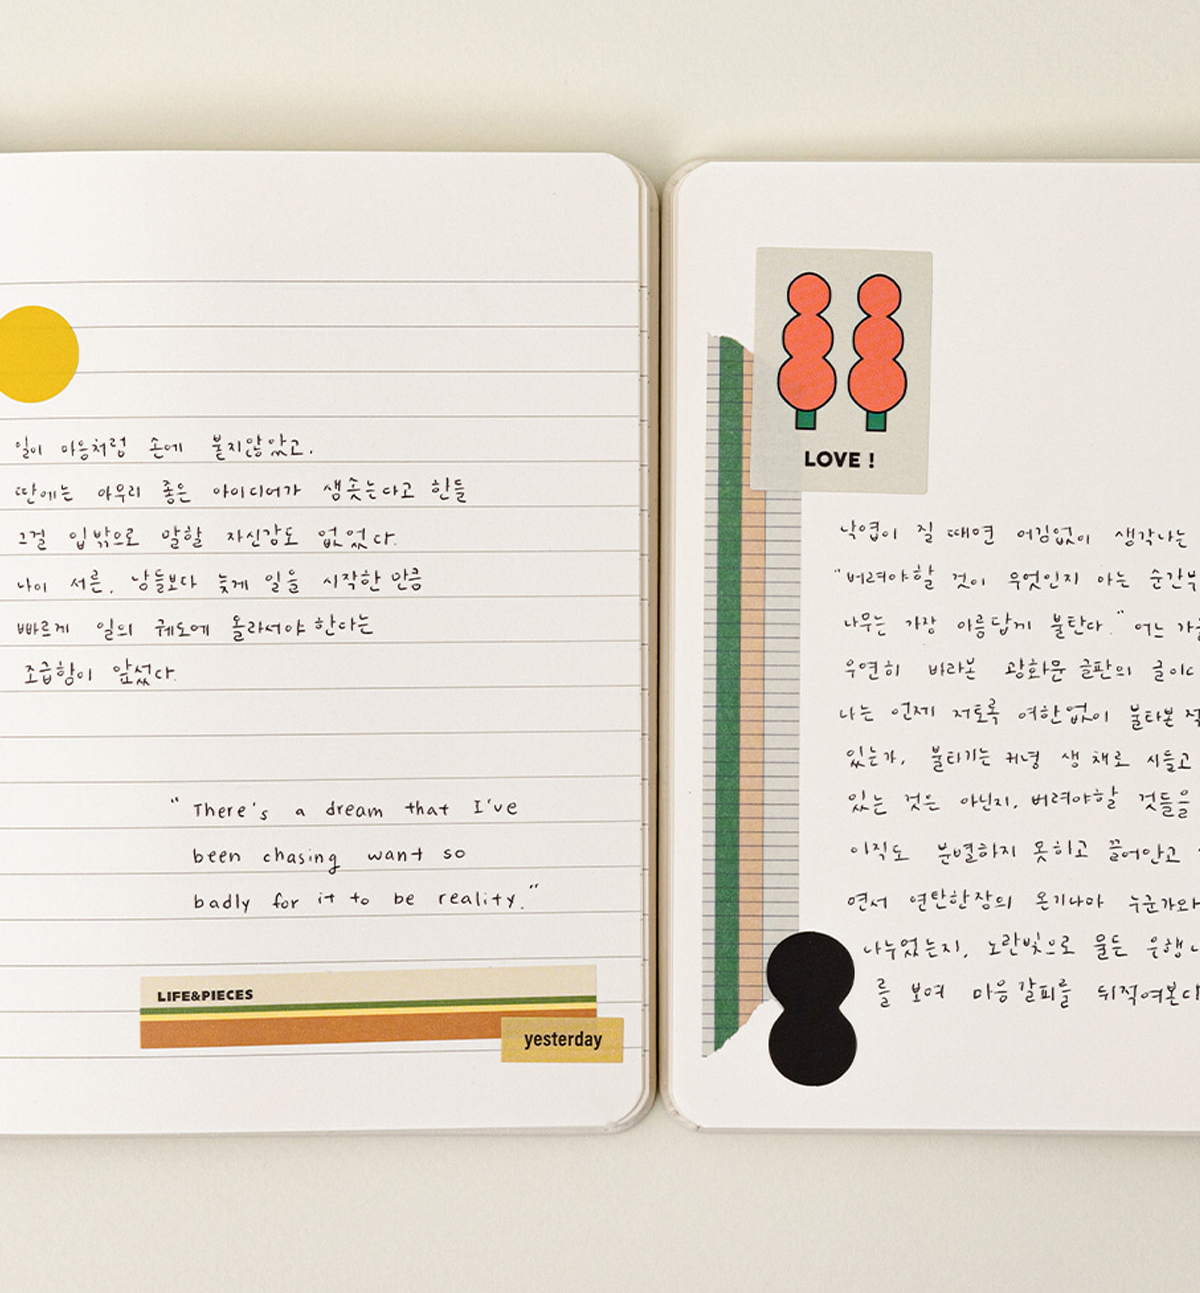 일이 마음처럼 손에 붙지않았고.
딴에는 아무리 좋은 아이디어가 샘솟는다고 한들
그걸 입밖으로 말할 자신감도 없었다.
나이 서른. 남들보다 늦게 일을 시작한 만큼
빠르게 일의 궤도에 올라서야 한다는
조급함이 앞섰다.
" There's a dream that I've
been chasing want so
badly for it to be reality."
LIFE&PIECES
yesterday
LOVE !
낙엽이 질 때면 어김없이 생각나는
"버려야할 것이 무엇인지 아는 순간부
나무는 가장 아름답게 불탄다." 어느 가을
우연히 바라본 광화문 글판의 글이다
나는 언제 저토록 여한없이 불타본 적
있는가. 불타기는 커녕 생 채로 시들고
있는 것은 아닌지. 버려야할 것들을
이직도 분별하지 못하고 끌어안고
면서 연탄한장의 온기나마 누군가와
나누었는지. 노란빛으로 물든 은행나
를 보며 마음 갈피를 뒤적여본다